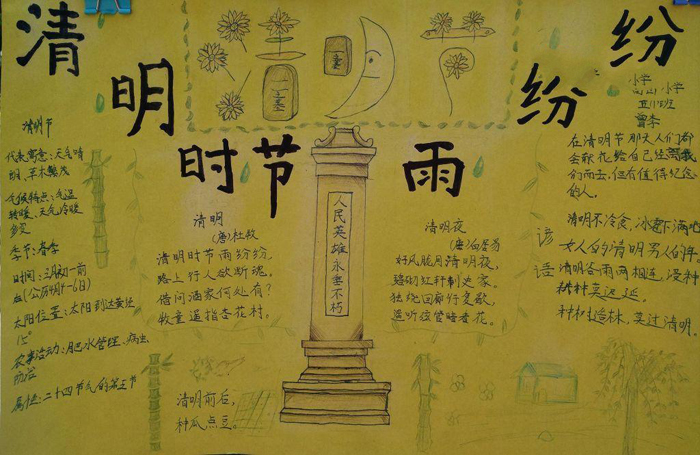 清明
时节
雨
纷纷
清明节
代表寓意:天气晴
明、草木繁茂
气候特点:气温
转暖、天气冷暖
多变
季节:春季
太阳位置:太阳到达黄经
15°
农事活动:肥水管理、病虫
防治
属性:二十四节气的第五节
清明
(唐)杜牧
清明时节雨纷纷,
路上行人欲断魂。
借问酒家何处有?
牧童遥指杏花村。
清明前后,
种瓜点豆。
人民英雄永垂不朽
清明夜
(唐)白居易
好风胧月清明夜,
碧砌红轩刺史家。
独绕回廊行复歇,
遥听弦管暗看花。
小学
小学
五班
曾李
在清明节那天人们都
会献花给自己
们而去,但有值得纪念
的人。
谚语
清明不冷食,
女人的清明男人的年。
清明谷雨两相连,浸种
耕种莫迟延。
种树造林,莫过清明。